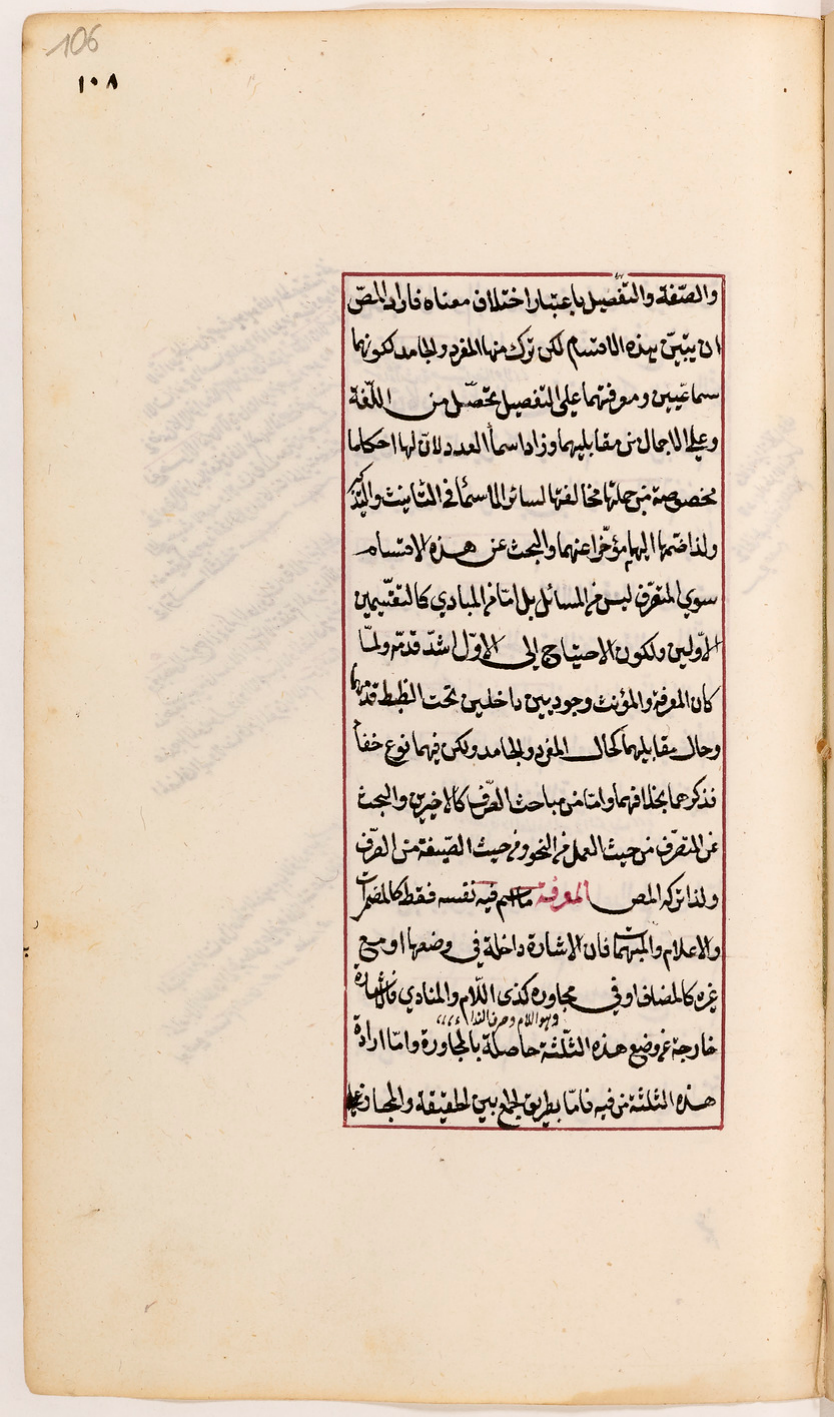 106
١٠٨
والصّفة والتّفصيل باعتبار اختلاف معناه فاراد المصّ
ان يبيّن هذه الاقسام لكن ترك منها المفرد والجامد لكونهما
سماعيين ومعرفتهما على التفصيل تحصّل من اللّغة
وعلى الاجمال من مقابليهما وزاد اسماً العدد لانّ لها احكاما
مخصوصة من جملتها مخالفتها لسائر الاسمٓا فى التانيث والتّذكير
ولذا ضمّها اليها مؤخّرا عنهما والبحث عن هذه الاقسام
سوي المتصرّف ليس من المسائل بل امّا من المبادي كالتقسيمين
الاوّلين ولكون الاحتياج الى الاوّل اشدّ قدمّه ولمّا
كان المعرفة والمؤنث وجوديين داخلين تحت الظبط قدّمهما
وحال مقابليهما كحال المفرد والجامد ولكن فيهما نوع خفاً
فذكرهما بخلافهما وامّا من مباحث الصّرف كالاخيرين والبحث
عن المتصرّف من حيث العمل من النحو ومن حيث الصّيغة من الصّرف
ولذا تركه المص المعرفة ما سم فيه نفسه فقط كالمضمرات
والاعلام والمبهمات فان الاشارة داخلة فى وضعها او مع
غيره كالمضاف او فى مجاوره كذى اللّام والمنادي فالاشارة
وهو اللام وحرف الندا
خارجة عن وضع هذه الثلثة حاصلة بالمجاورة وامّا ارادة
هذه الثلثة من فيه فامّا بطريق الجمع بين الحقيقة والمجاز